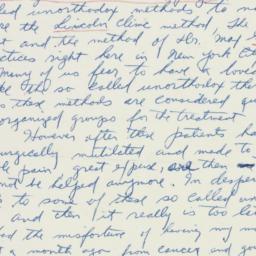 led unorthodox methods to
re the Lincoln Clinic method. The
and the method of Dr. Max
ctices right here in New York
Many of us fear to have a loved
the so called unorthodox
these methods are considered
organized groups for the treatment
However after these patients
surgically mutilated and made to
pain, great expense, and then
not be helped anymore. In
to some of these so called
and then it really is too
had the misfortune of having my
a month ago from cancer and